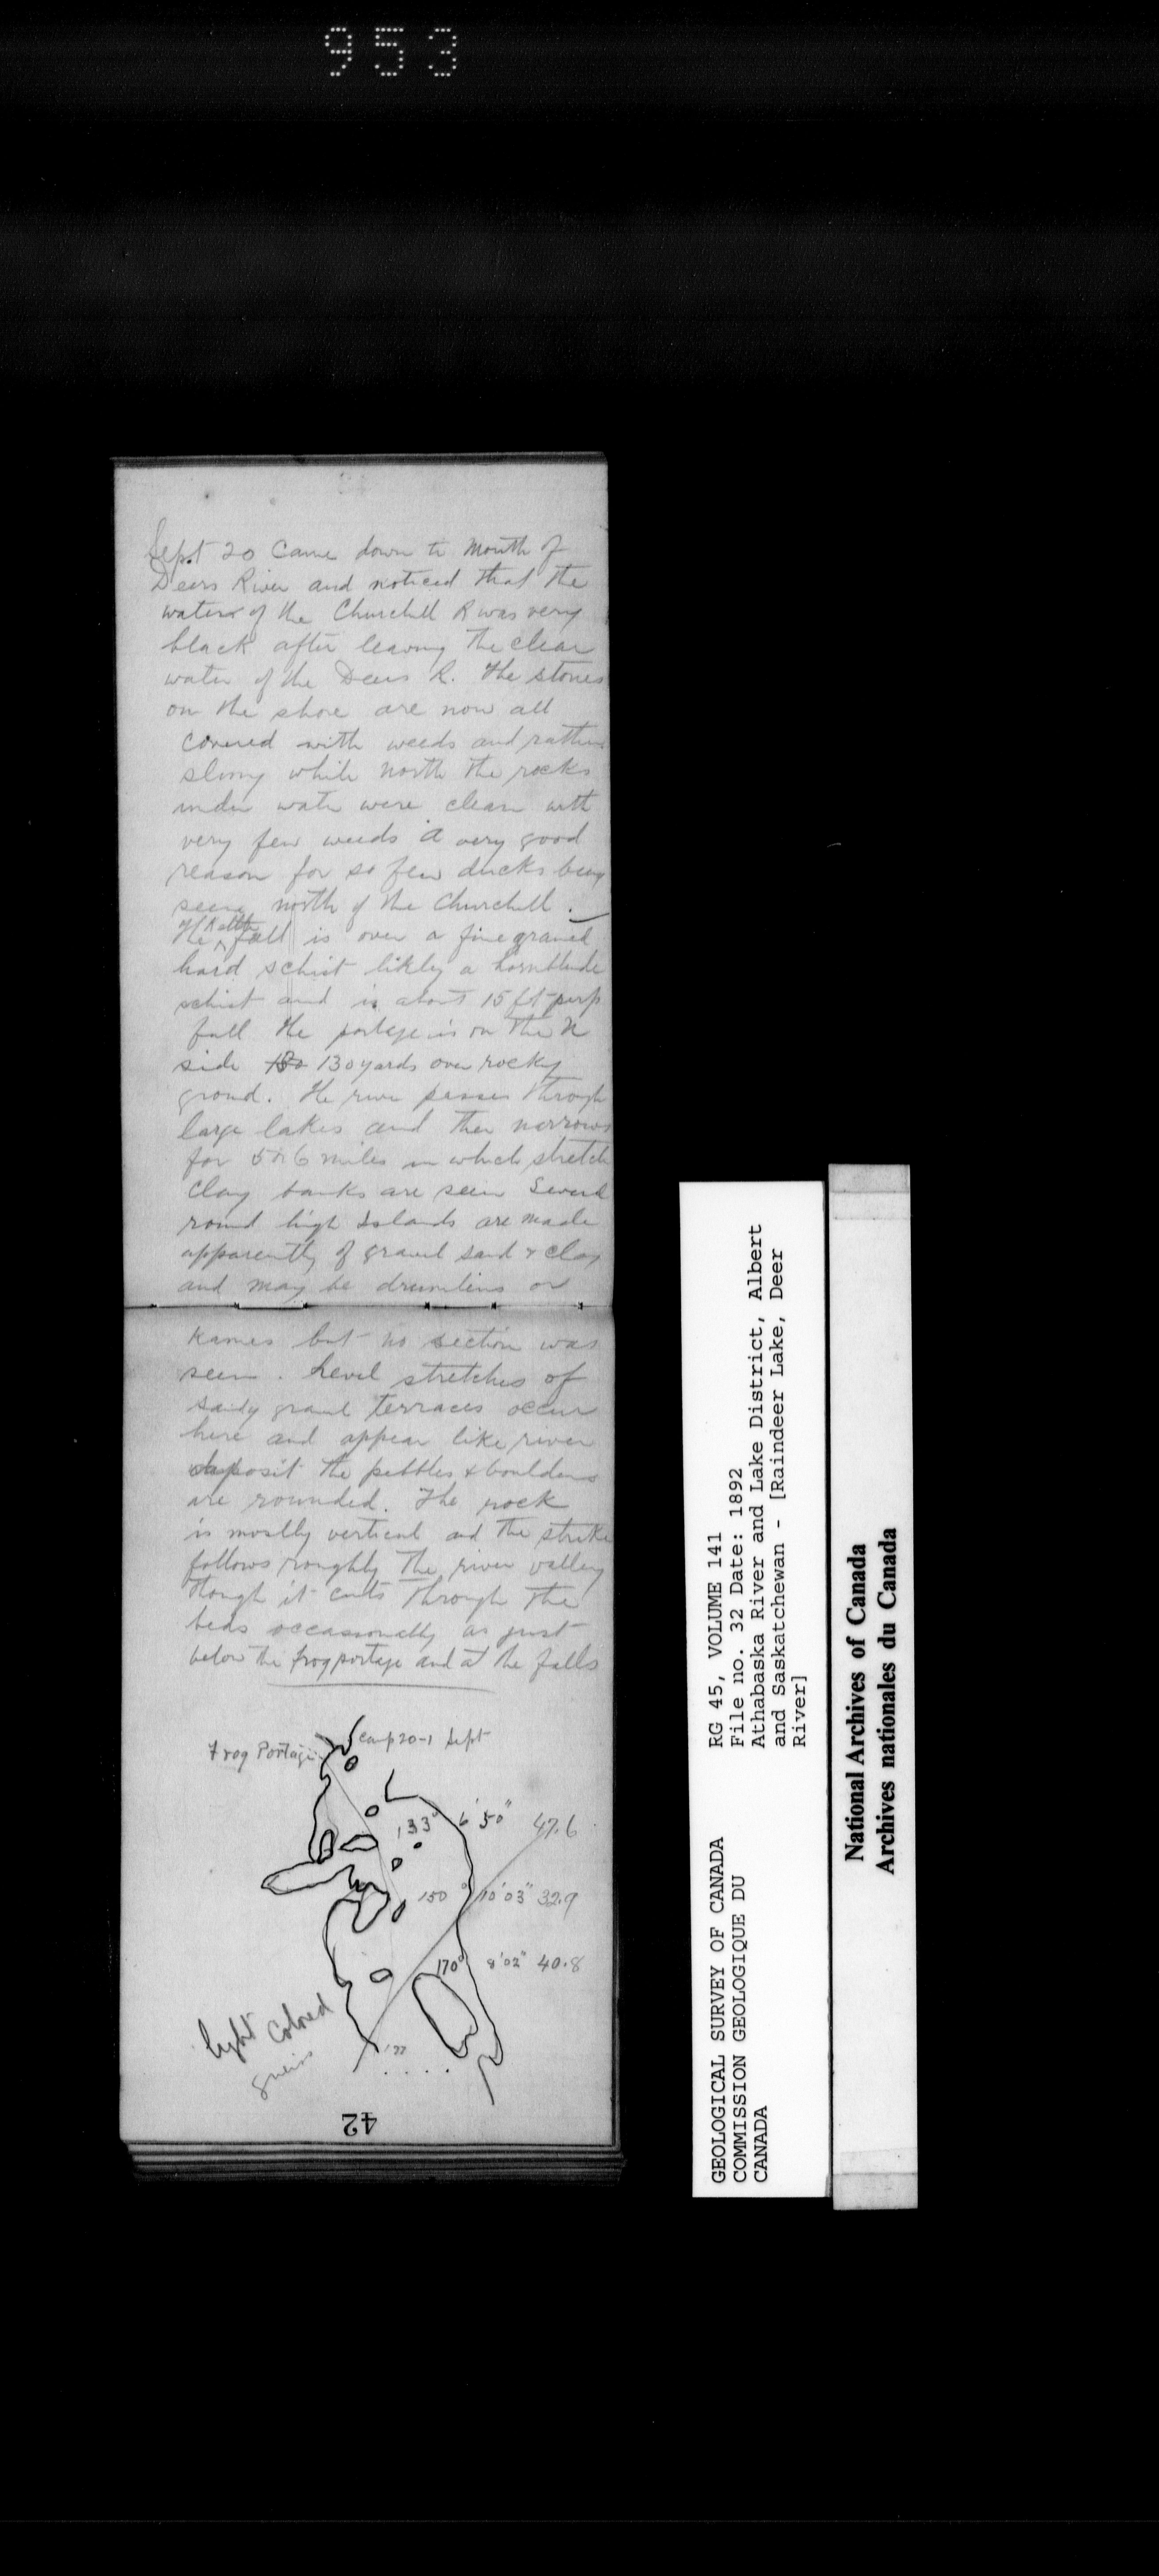 953
Sept 20 Came down to Mouth of
Deers River and noticed that the
water of the Churchill R was very
black after leaving the clear
water of the Deers R. The stones
on the shore are now all
covered with weeds and rather
slimy while north the rocks
under water were clean with
very few weeds a very good
reason for so few ducks being
seen north of the Churchill.
The Kettle fall is over a fine grained
hard schist likly a hornblende
schist and is about 15 ft perp
fall the portage is on the N
side 180 130 yards over rocky
ground. The river passes through
large lakes and then narrows
for 5 or 6 miles in which stretch
clay banks are seen Several
round high Islands are made
apparently of gravel sand & clay
and may be drumlins or
kames but no section was
seen. Level stretches of
sandy gravel terraces occur
here and appear like river
deposit the pebbles & boulders
are rounded. The rock
is mostly vertical and the strike
follows roughly the river valley
though it cuts through the
beds occassionally as just
below the frog portage and at the falls
Camp 20-1 Sept
Frog Portage
133° 6' 50" 47.6
150° 10' 03" 32.9
170° 8' 02" 40.8
light colored
gneiss
42
GEOLOGICAL SURVEY OF CANADA
COMMISSION GEOLOGIQUE DU
CANADA
RG 45, VOLUME 141
File no. 32 Date: 1892
Athabaska River and Lake District, Albert
and Saskatchewan - [Raindeer Lake, Deer
River]
National Archives of Canada
Archives nationales du Canada